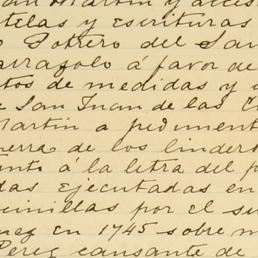 an Martin y acces
telas y escrituras
o Potrero del San
arrafolo á favor de
tos de medidas y
e San Juan de las C
Martin a pediment
erra de los linder
unto á la letra del p
das ejecutadas en
cinillas por el su
nez en 1745 sobre m
Perez causante de